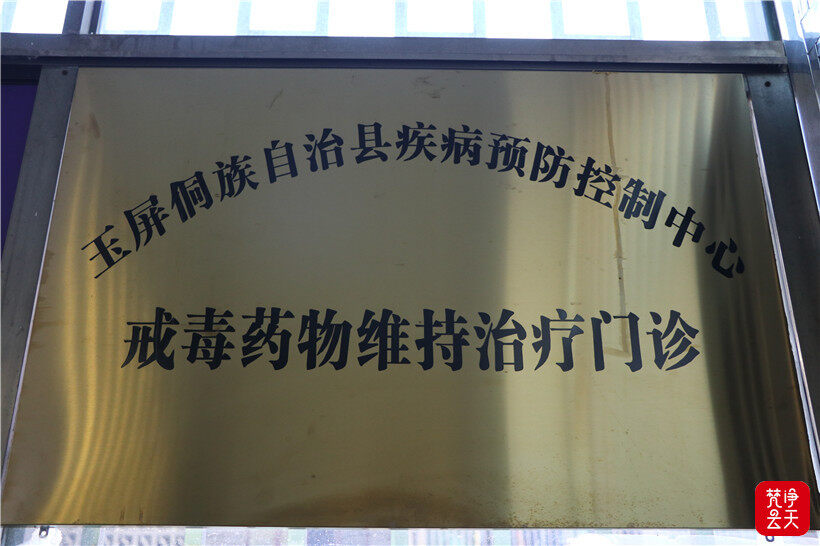 玉屏侗族自治县疾病预防控制中心
戒毒药物维持治疗门诊
梵净
云天